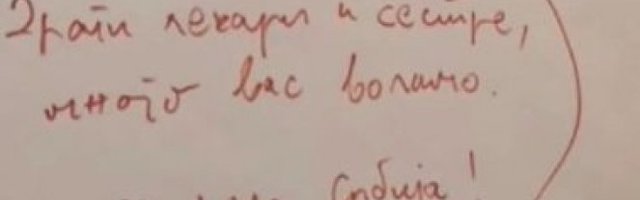 Драги лекари и сестре,
много вас волимо.
Србија!